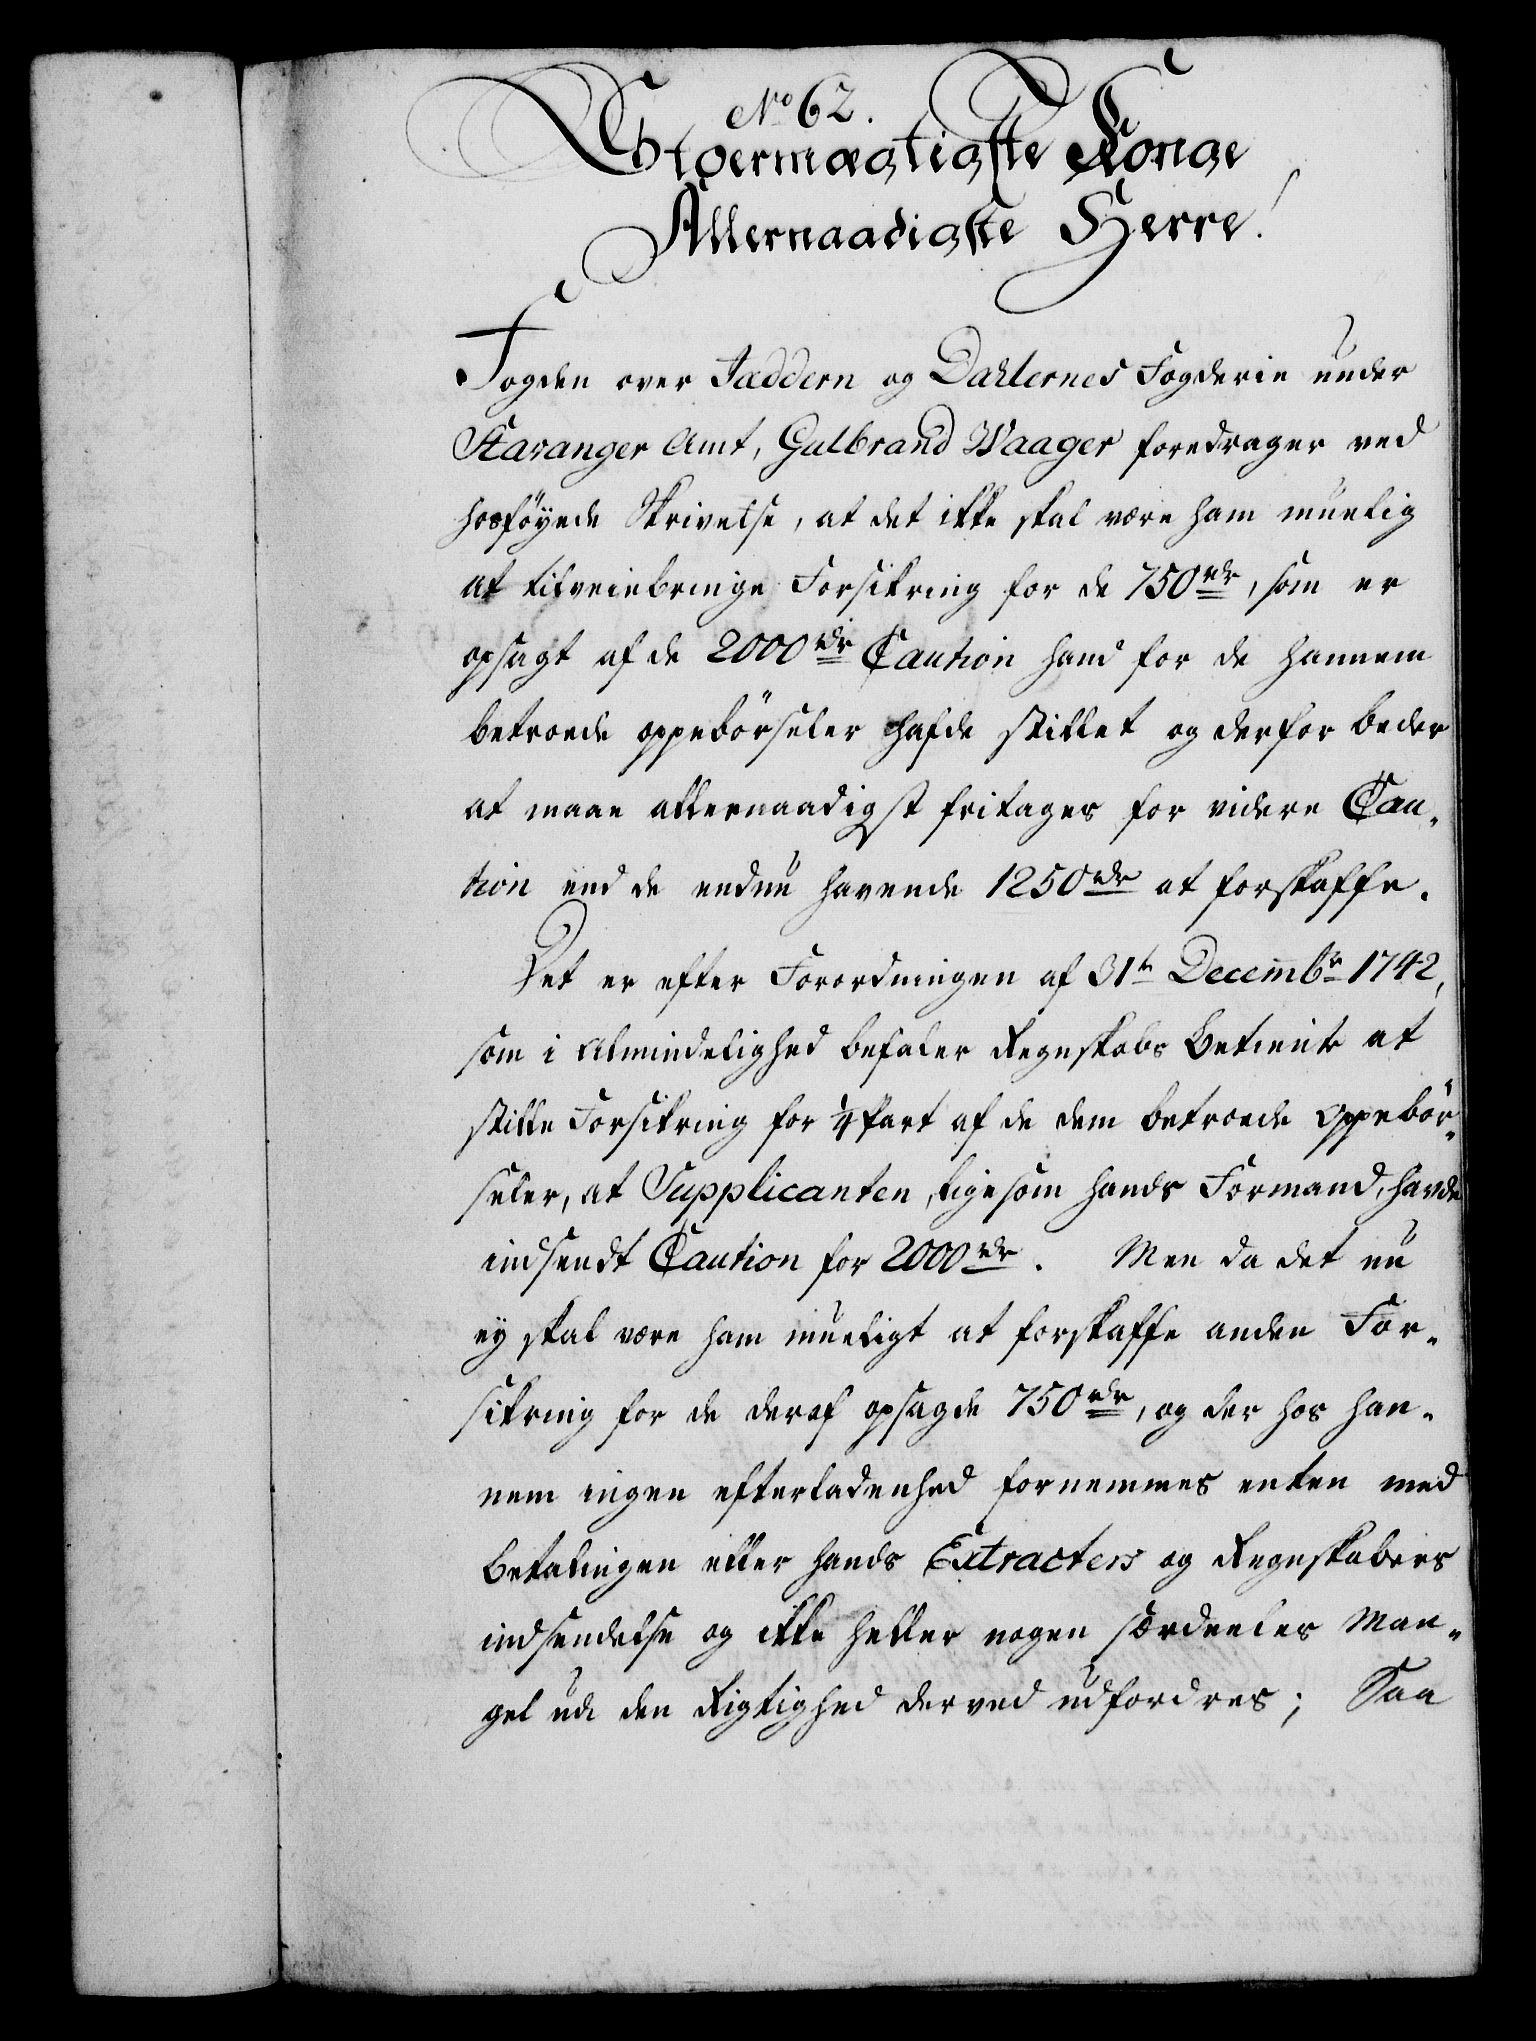 No 62.
Stoermægtigste Konge
Allernaadigste Herre!
Fogden over Jæddern og Dahlernes Fogderie under
Stavanger Amt, Gulbrand Waager foredrager ved
hosföyede Skrivelse, at det ikke skal være ham muelig
at tilveiebringe Forsikring for de 750 rdr, som er
opsagt af de 2000 rdr Caution hand for de hannem
betroede oppebörseler hafde stillet og derfor beder
at maae allernaadigst fritages for videre Cau-
tion end de endnu havende 1250 rdr at forskaffe.
Det er efter Forordningen af 31te Decembr 1742,
som i Almindelighed befaler Regnskabs Betiente at
stille Forsikring for ¼ Part af de dem betroede Oppebör-
seler, at Supplicanten, ligesom hands Formand, havde
indsendt Caution for 2000 rdr. Men da det nu
ey skal være ham mueligt at forskaffe anden For-
sikring for de deraf opsagde 750 rdr, og der hos han-
nem ingen efterladenhed fornemmes enten med
Betalingen eller hands Extracters og Regnskabers
indsendelse og ikke heller nogen særdeeles Man-
gel udi den Rigtighed derved udfordres; Saa